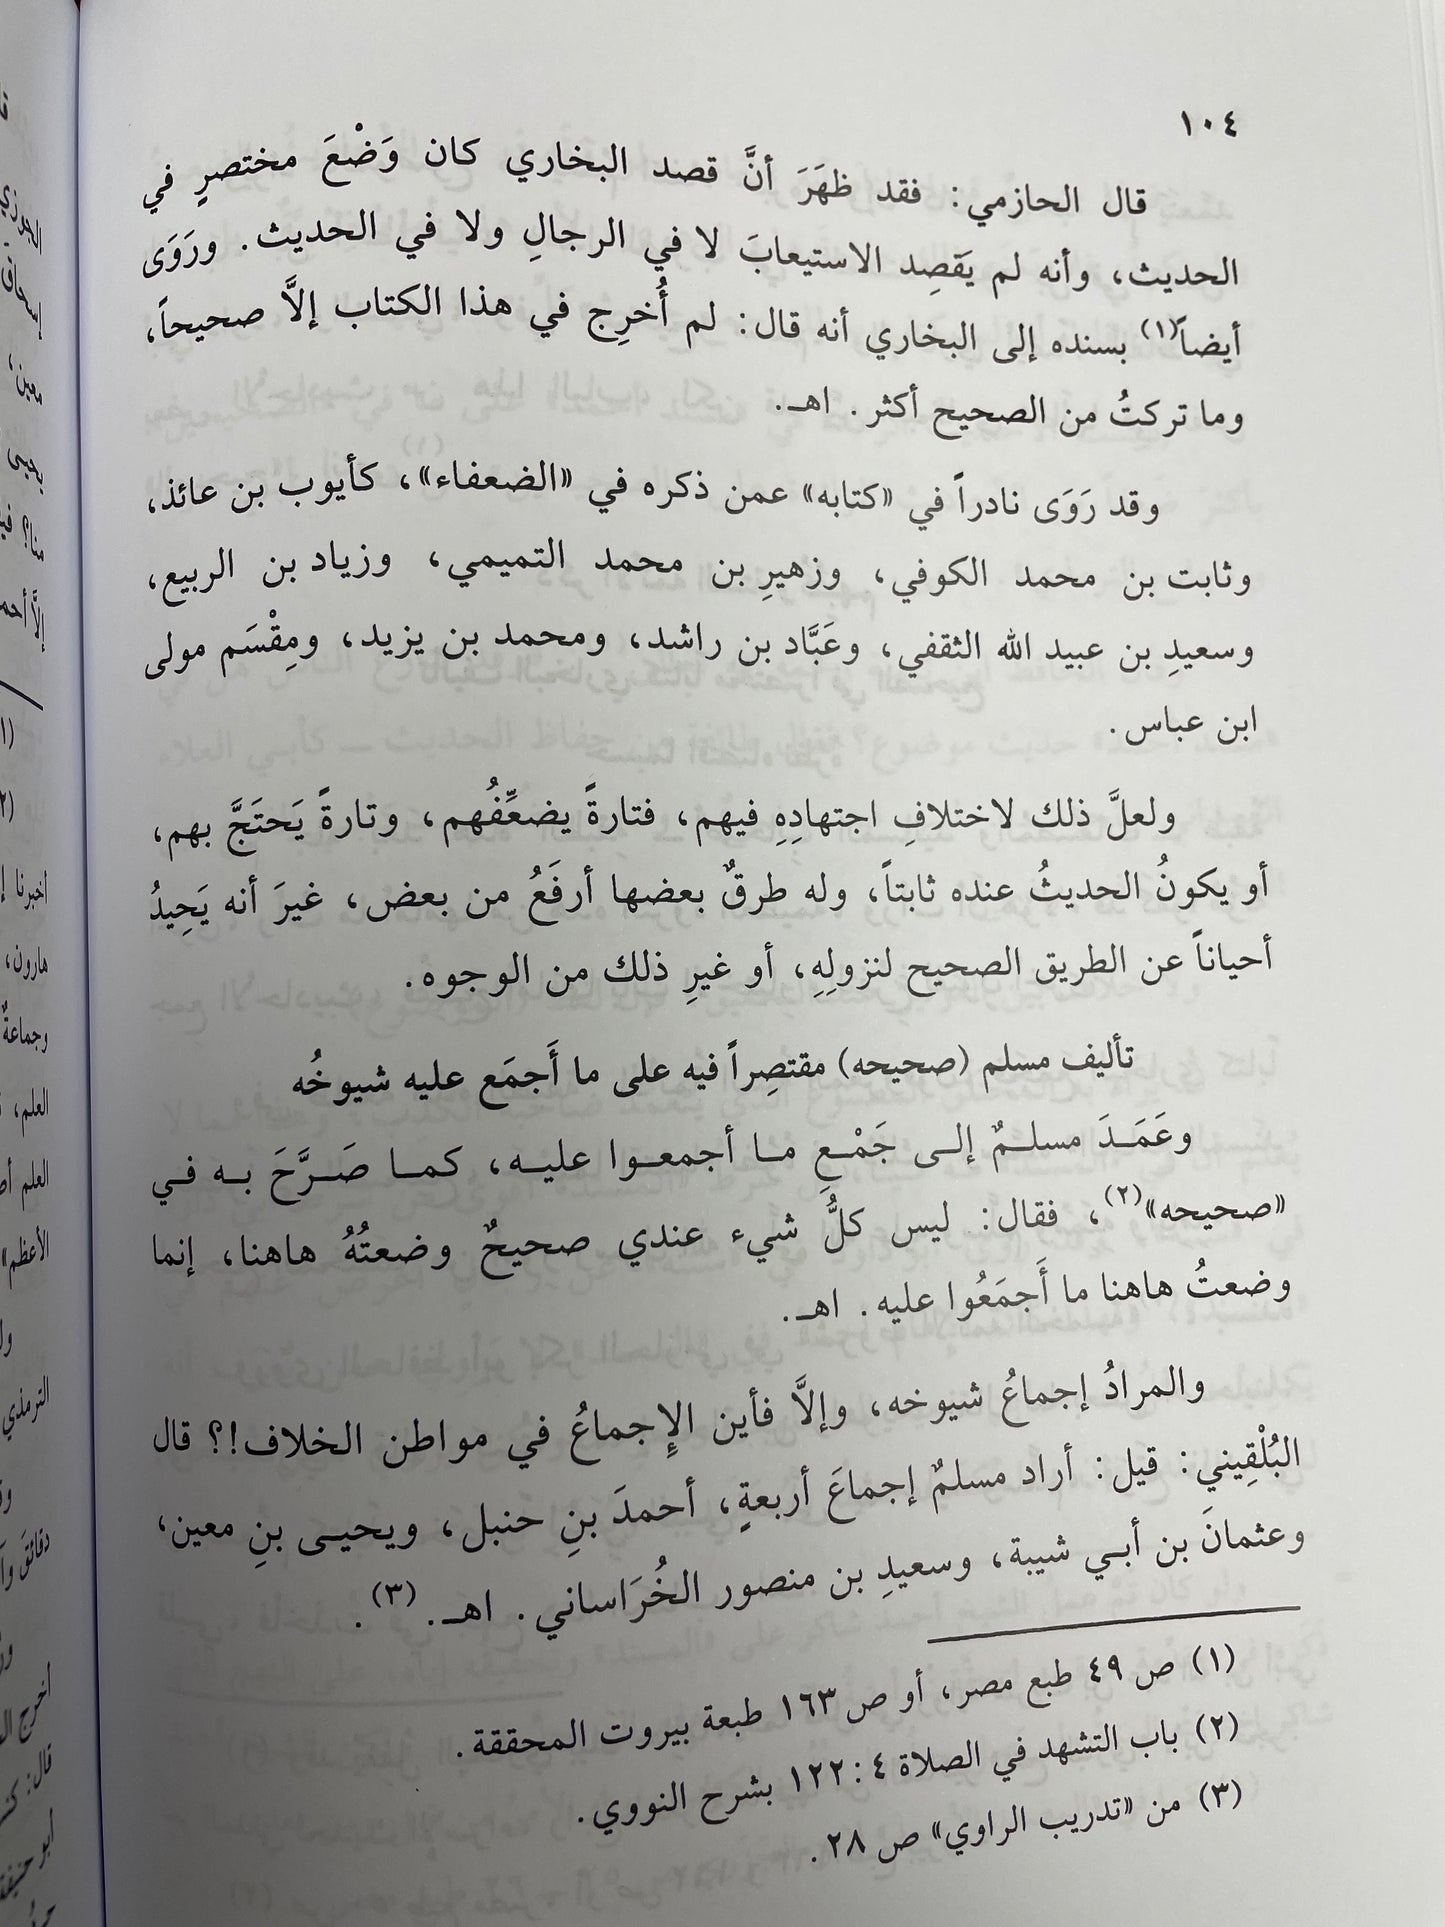 ١٠٤
قال الحازمي: فقد ظهَرَ أنَّ قصد البخاري كان وَضْعَ مختصرٍ في
الحديث، وأنه لم يَقصِد الاستيعابَ لا في الرجالِ ولا في الحديث. ورَوَى
أيضاً(١) بسنده إلى البخاري أنه قال: لم أُخرِج في هذا الكتاب إلاَّ صحيحاً،
وما تركتُ من الصحيح أكثر. اهـ.
وقد رَوَى نادراً في «كتابه» عمن ذكره في «الضعفاء»، كأيوب بن عائذ،
وثابت بن محمد الكوفي، وزهيرِ بن محمد التميمي، وزياد بن الربيع،
وسعيدِ بن عبيد الله الثقفي، وعَبَّاد بن راشد، ومحمد بن يزيد، ومِقْسَم مولى
ابن عباس.
ولعلَّ ذلك لاختلافِ اجتهادِهِ فيهم، فتارةً يضعِّفُهم، وتارةً يَحتَجَّ بهم،
أو يكونُ الحديثُ عنده ثابتاً، وله طرقٌ بعضها أرفَعُ من بعض، غيرَ أنه يَحِيدُ
أحياناً عن الطريق الصحيح لنزولِهِ، أو غيرِ ذلك من الوجوه.
تأليف مسلم (صحيحه) مقتصِراً فيه على ما أَجمَع عليه شيوخُه
وعَمَـدَ مسلـمٌ إلـى جَمْـعِ مـا أجمعـوا عليـه، كمـا صَـرَّحَ بـه فـي
«صحيحه»(٢)، فقال: ليس كلُّ شيء عندي صحيحٌ وضعتُهُ هاهنا، إنما
وضعتُ هاهنا ما أَجمَعُوا عليه. اهـ.
والمرادُ إجماعُ شيوخه، وإلاَّ فأين الإِجماعُ في مواطن الخلاف!؟ قال
البُلْقِيني: قيل: أراد مسلمٌ إجماعَ أربعةٍ، أحمدَ بنِ حنبل، ويحيـى بنِ معين،
وعثمانَ بن أبـي شيبة، وسعيدِ بن منصور الخُرَاساني. اهـ. (٣).
(١) ص ٤٩ طبع مصر، أو ص ١٦٣ طبعة بيروت المحققة.
(٢) باب التشهد في الصلاة ٤: ١٢٢ بشرح النووي.
(٣) من «تدريب الراوي» ص ٢٨.